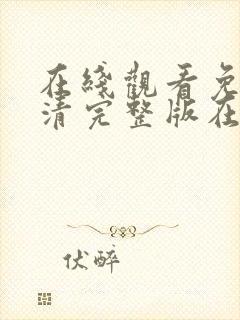 在綫觀看免
清完整版在
伏醉